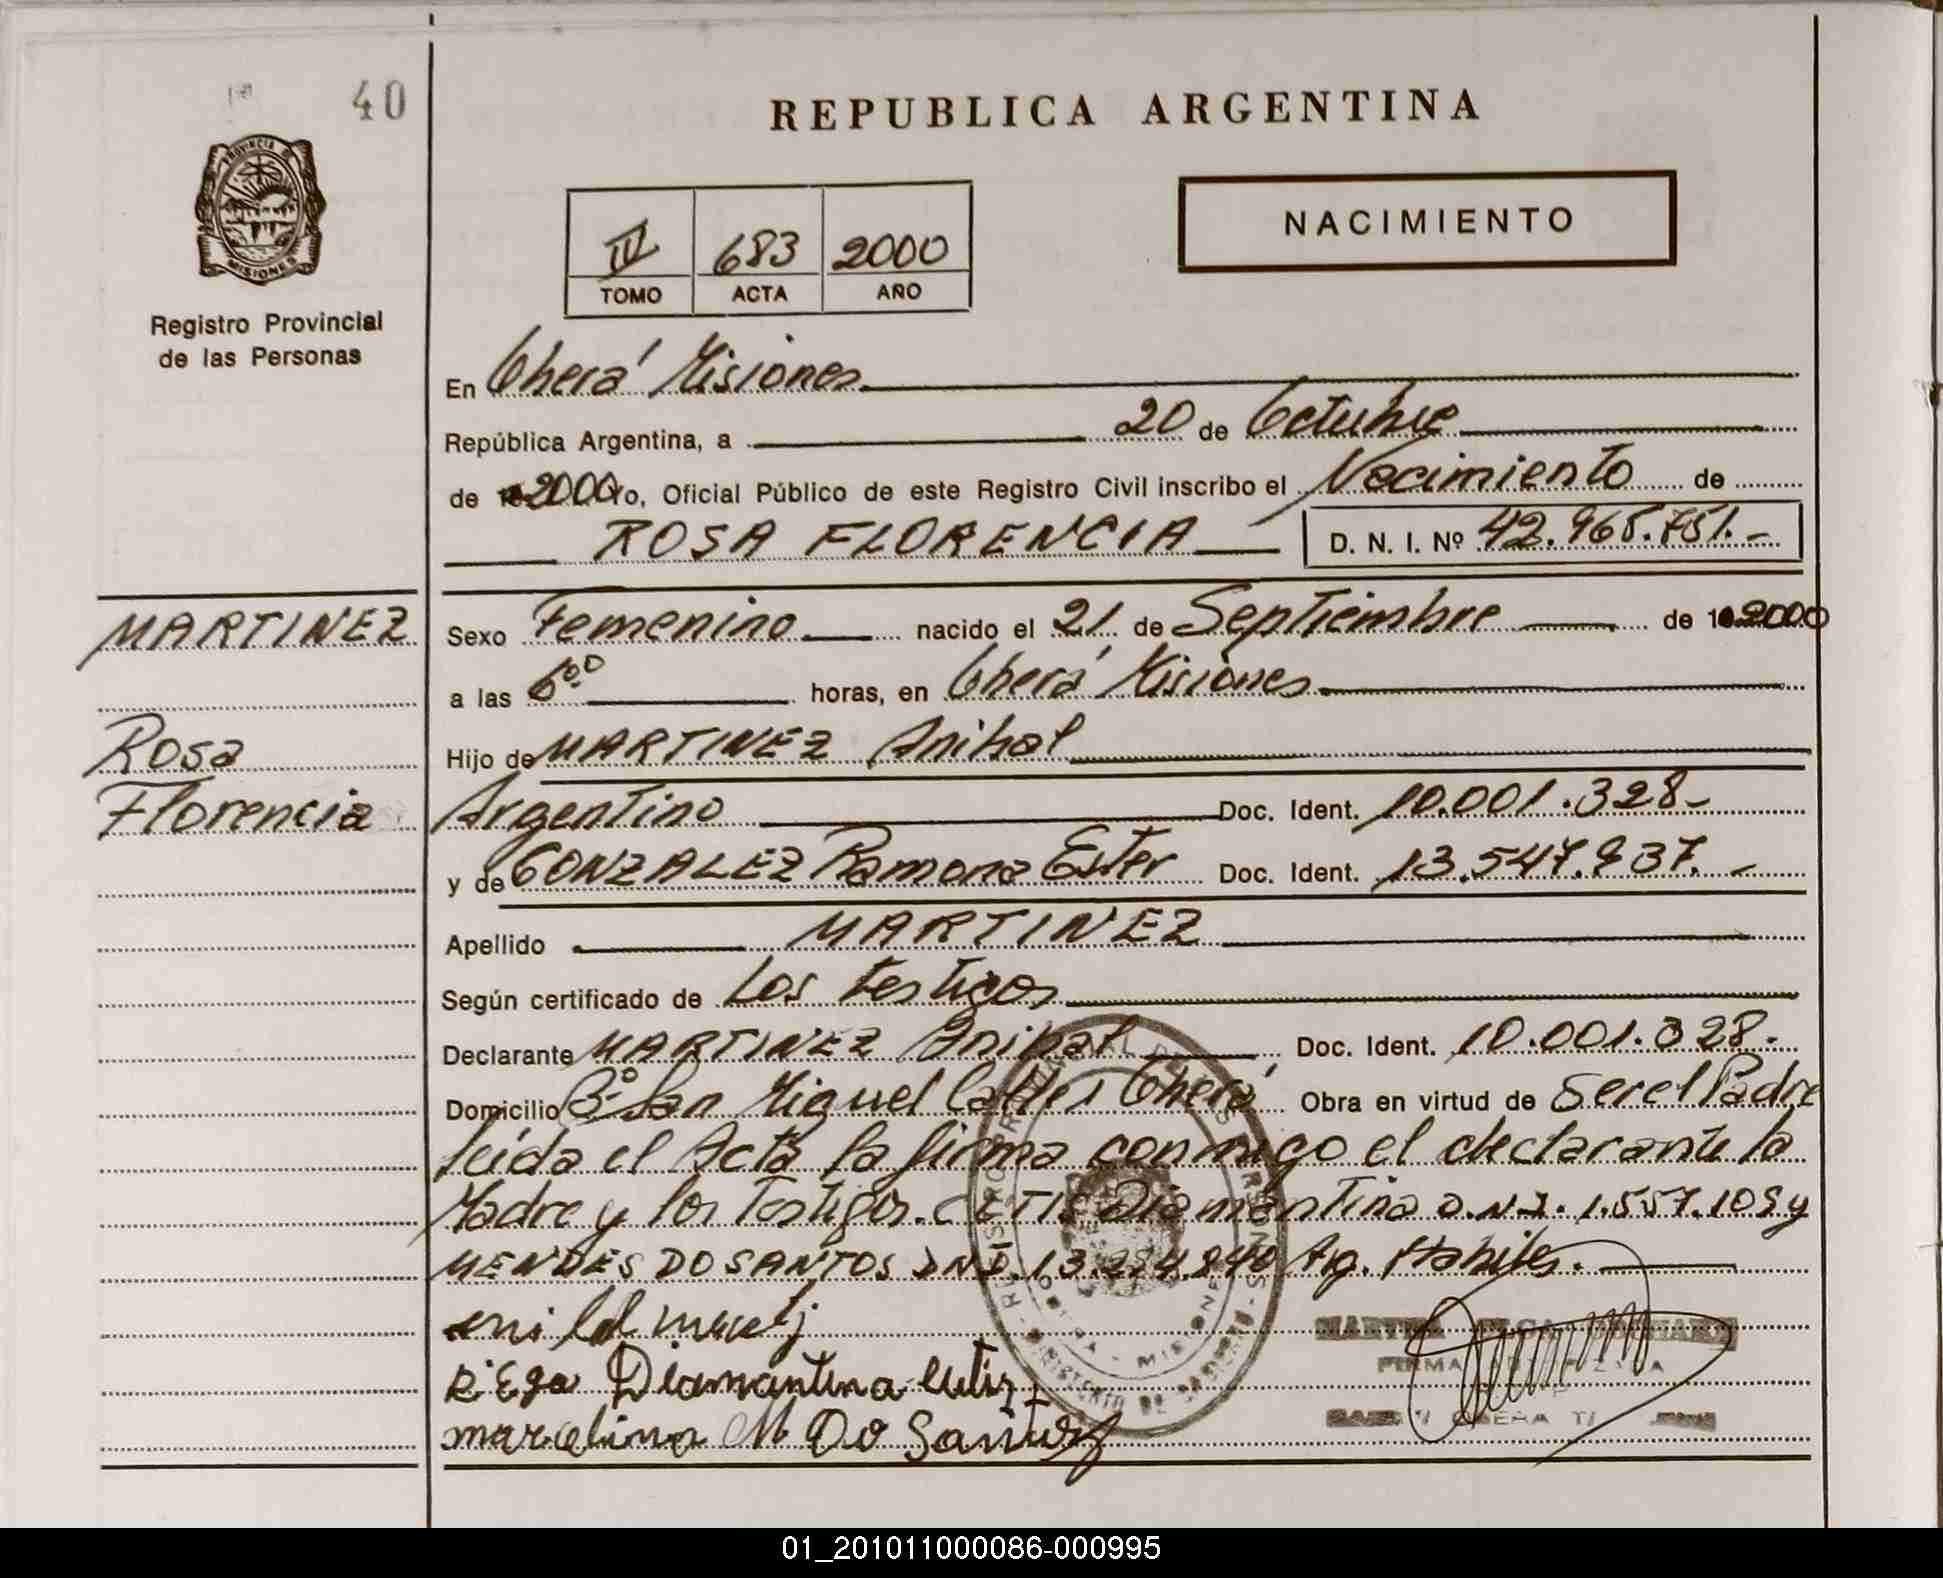 40
REPUBLICA ARGENTINA
PROVINCIA DE
MISIONES
NACIMIENTO
683 2000
TOMO ACTA AÑO
Registro Provincial
de las Personas
En Oberá Misiones
República Argentina, a 20 de Octubre
de 2000 yo, Oficial Público de este Registro Civil inscribo el Nacimiento de
ROSA FLORENCIA D. N. I. Nº 42.965.751.-
MARTINEZ
Sexo Femenino nacido el 21 de Septiembre de 2000
a las 6 horas, en Oberá Misiones
Rosa
Hijo de MARTINEZ Anibal
Florencia
Argentino Doc. Ident. 10.001.328-
y de GONZALEZ Ramona Ester Doc. Ident. 13.547.937.-
Apellido MARTINEZ
Según certificado de Los testigos
Declarante MARTINEZ Anibal Doc. Ident. 10.001.328.
Domicilio Bº San Miguel Calle Oberá Obra en virtud de Ser el Padre
leída el Acta la firma conmigo el declarante la
Madre y los Testigos. Diamantina D.N.I. 1.557.109 y
MENDES DO SANTOS DNI. 13. Ag.
Diamantina
marcelina M Do Santos
01_201011000086-000995